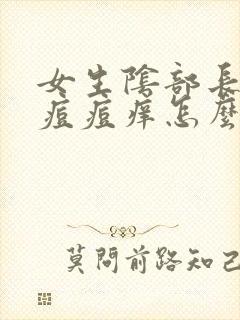 女生陰部長
痘痘痒怎麼
莫問前路知己